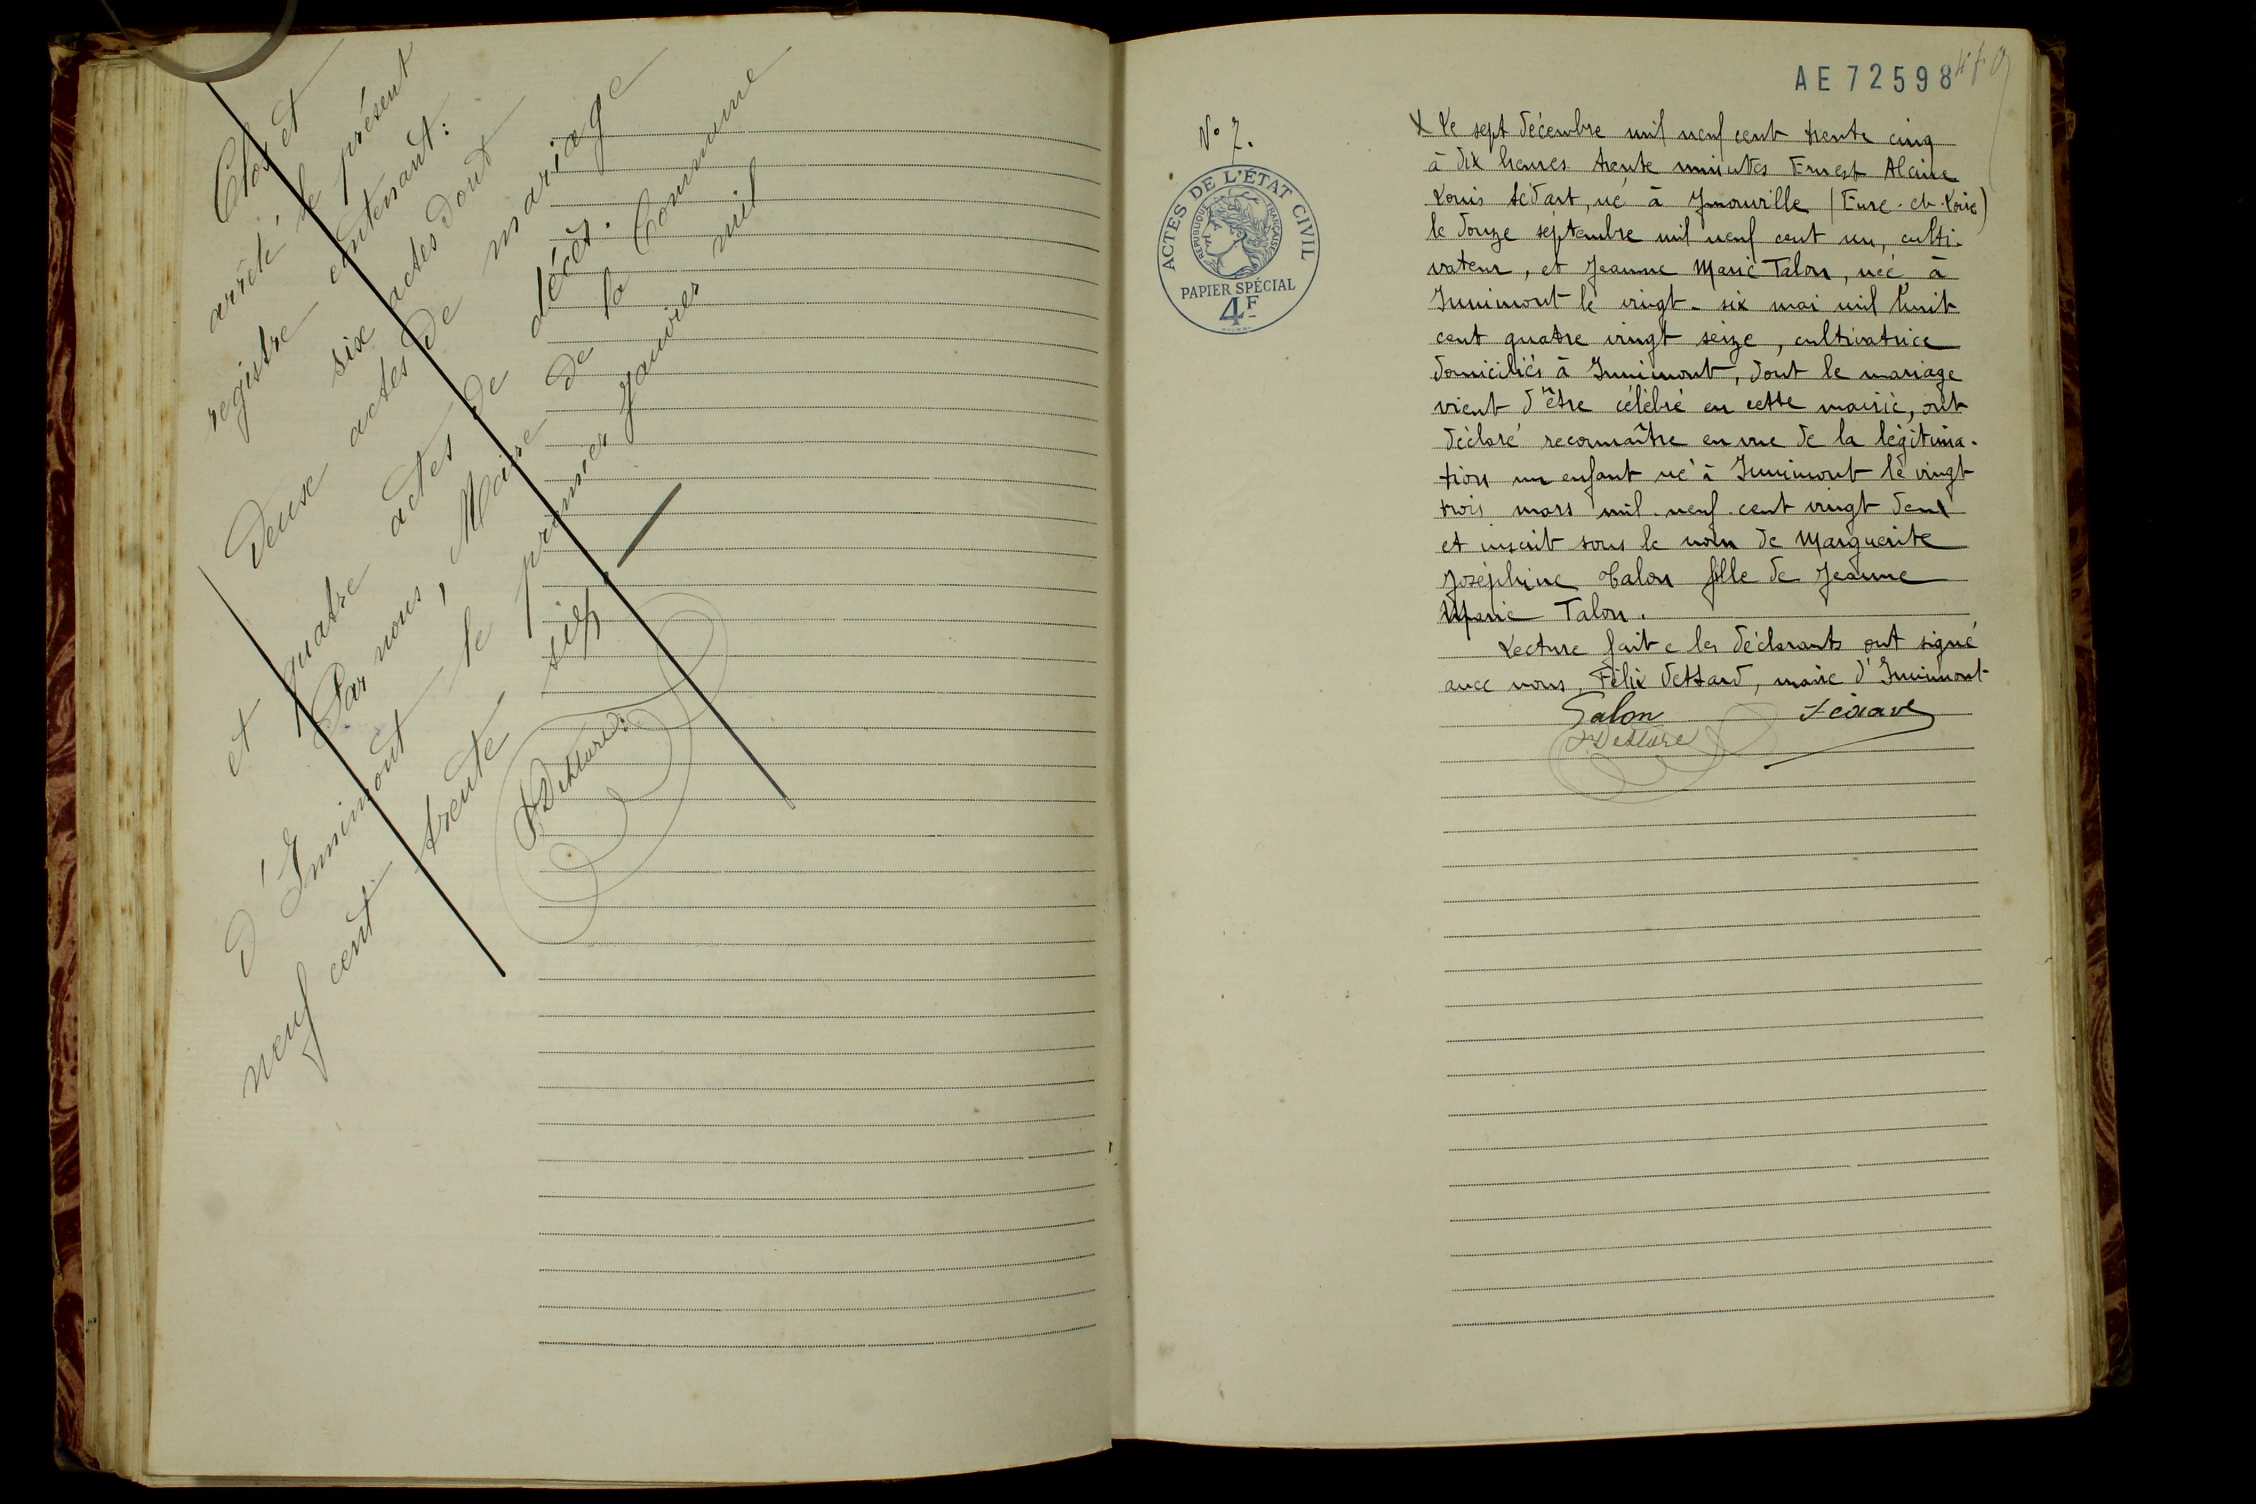 Clos et
arrêté le présent
registre contenant:
six actes dont
Deux actes de mariage
et quatre actes de décès.
Par nous, Maire de la Commune
d'Innimont le premier janvier mil
neuf cent trente six
F Dettard
AE 72598
N° 7.
ACTES DE L'ÉTAT CIVIL
RÉPUBLIQUE FRANÇAISE
PAPIER SPÉCIAL
4F
X Le sept décembre mil neuf cent trente cinq
à dix heures trente minutes Ernest
Louis, né à Ymonville (Eure-et-Loir)
le douze septembre mil neuf cent un, culti-
vateur, et Jeanne Marie Talon, née à
Innimont le vingt-six mai mil huit
cent quatre vingt seize, cultivatrice
domiciliés à Innimont, dont le mariage
vient d'être célébré en cette mairie, ont
déclaré reconnaître en vue de la légitima-
tion un enfant né à Innimont le vingt
trois mars mil neuf cent vingt deux
et inscrit sous le nom de Marguerite
Joséphine Talon fille de Jeanne
Marie Talon.
Lecture faite les déclarants ont signé
avec nous, Félix Dettard, maire d'Innimont
Talon
F Dettard